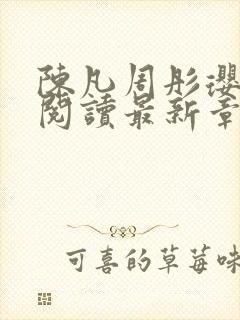 陳凡周彤瓔
閱讀最新章
可喜的草莓味